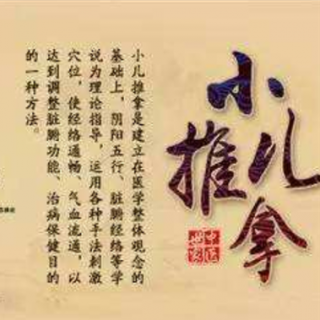 小儿推拿
中医
世家
小儿推拿是建立在医学整体观念的
基础上，阴阳五行、脏腑经络等学
说为理论指导，运用各种手法刺激
穴位，使经络通畅、气血流通，以
达到调整脏腑功能、治病保健目的
的一种方法。